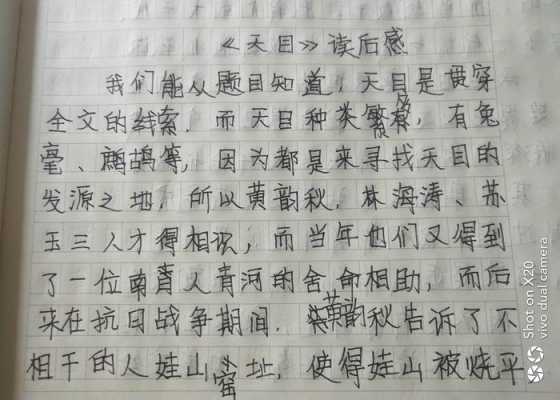 《天目》读后感
我们能从题目知道，天目是贯穿
全文的线索．而天目种类繁及質，有兔
毫、鹧鸪等，因为都是来寻找天目的
发源之地，所以黄韵秋，林海涛、苏
玉三人才得相识，而当年他们又得到
了一位南音人青河的舍命相助，而后
来在抗日战争期间．黄韵秋告诉了不
相干的人娃山窑址，使得娃山被烧平
Shot on X20
vivo dual camera